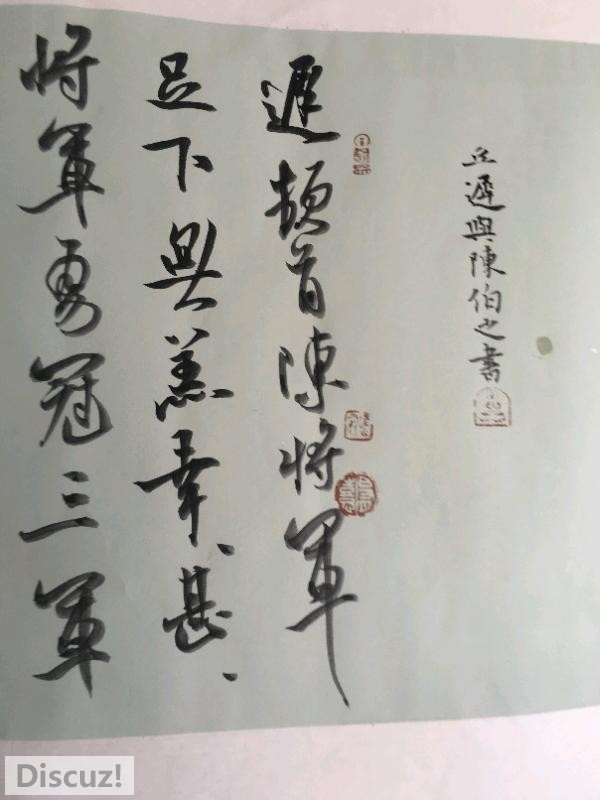 丘遲與陳伯之書
遲頓首陳將軍
足下無恙幸、甚、
将軍勇冠三軍
Discuz!